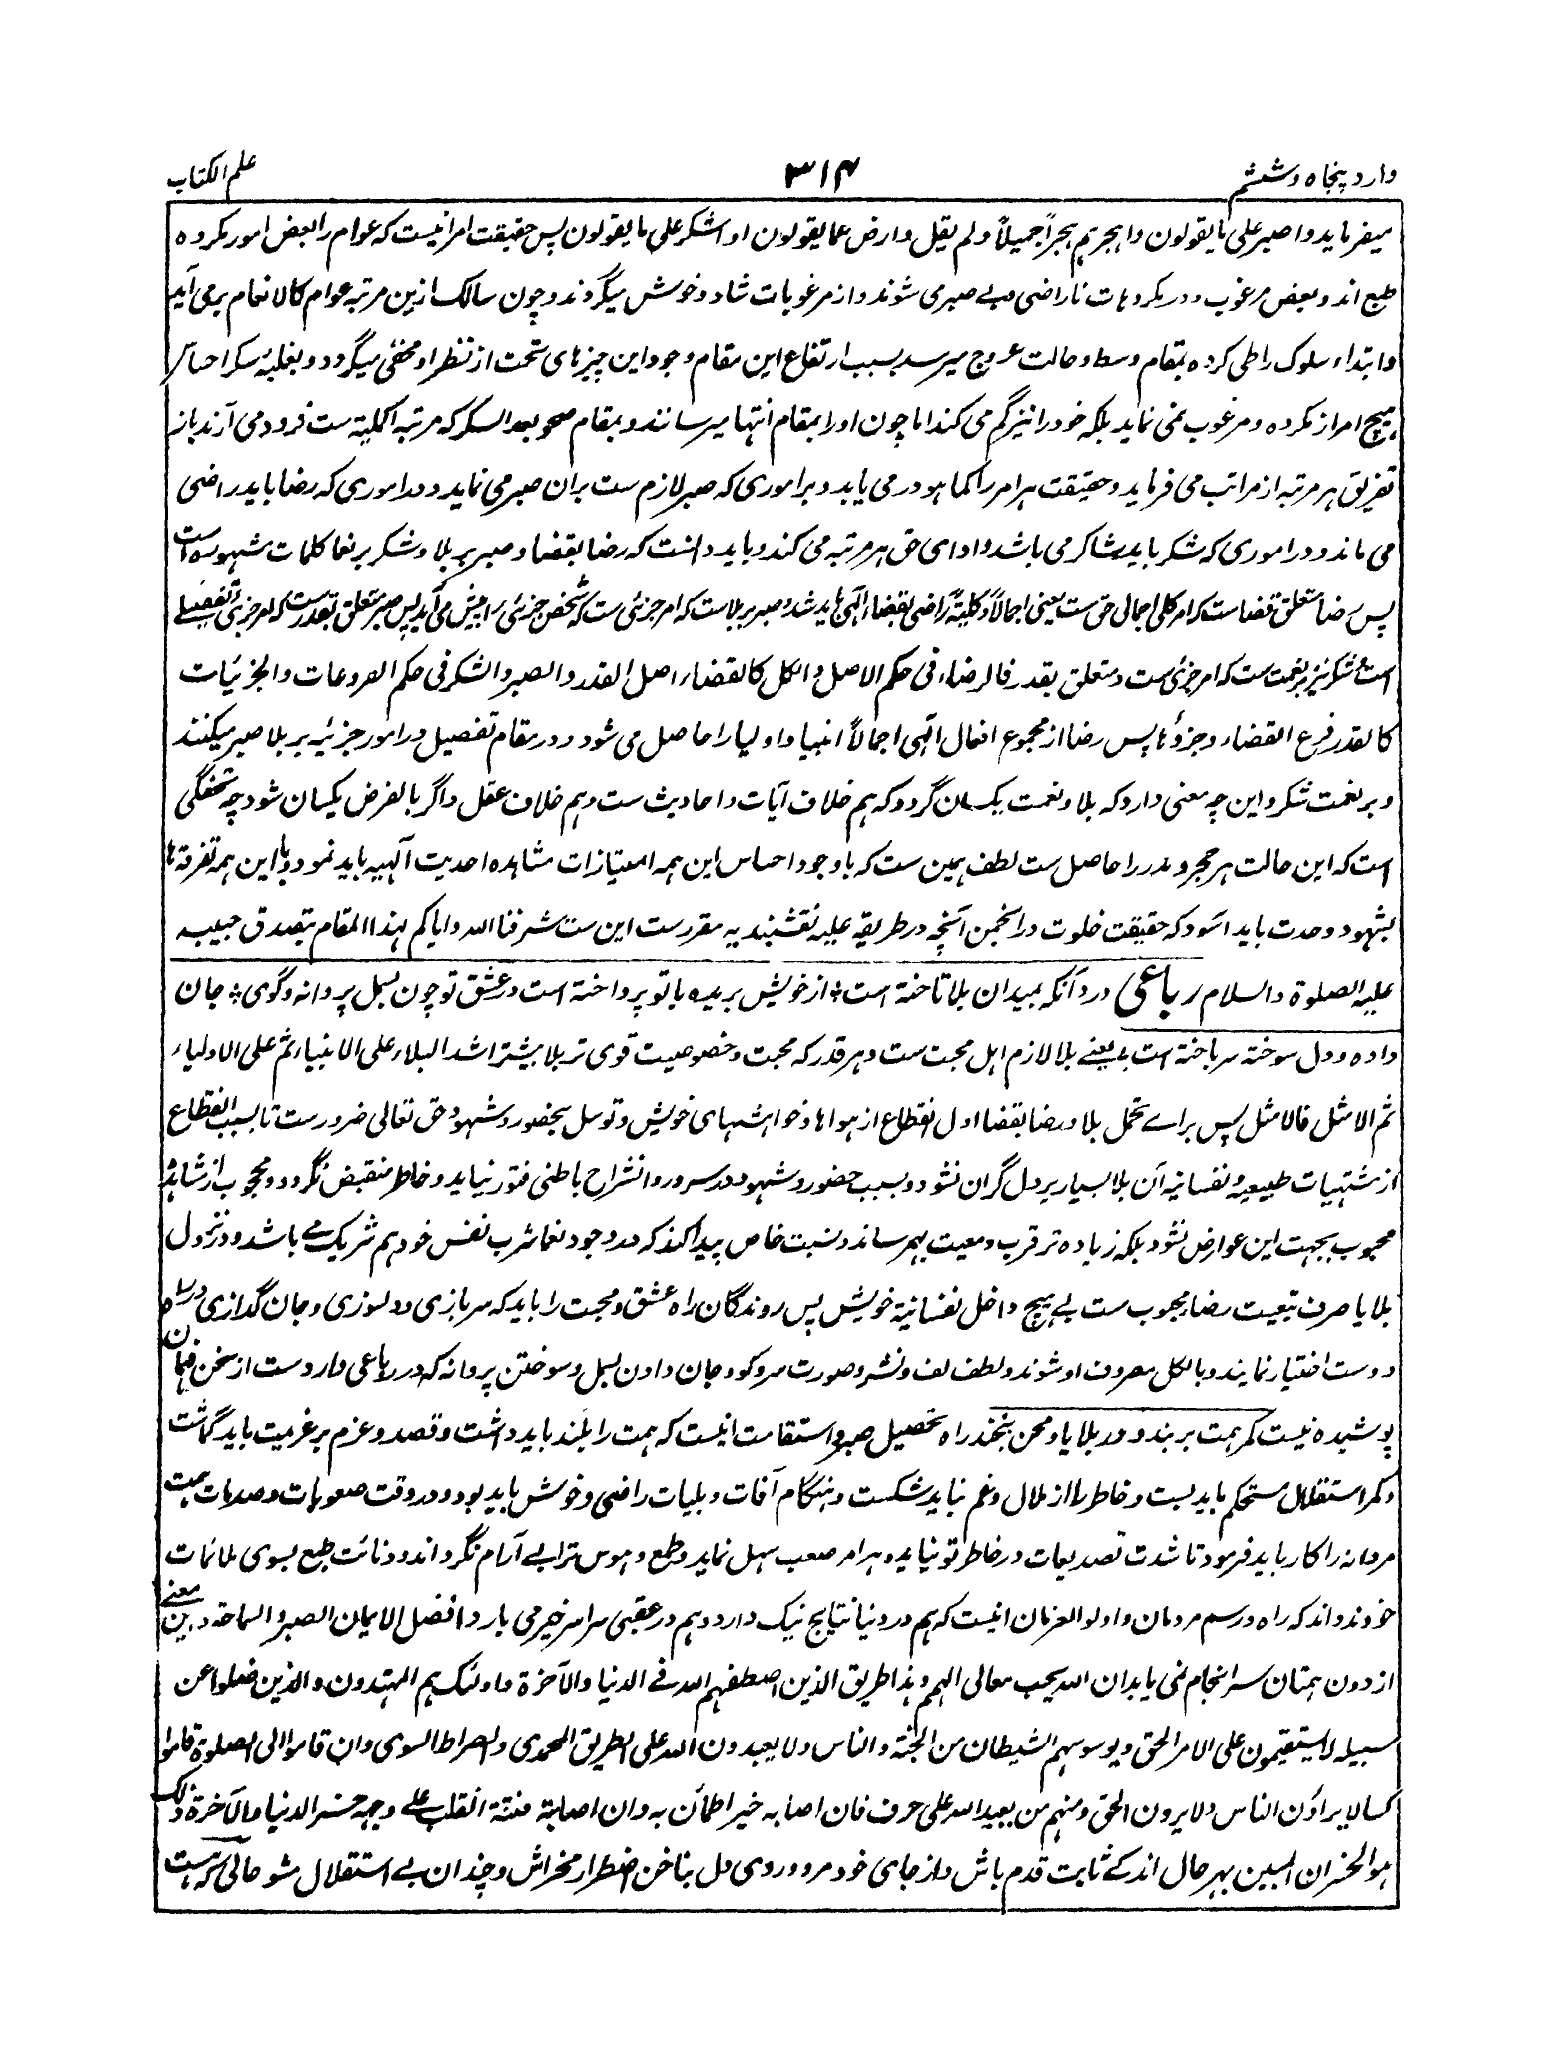 وارد پنجاه و ششم
۳۱۴
علم الکتاب
میفرماید واصبر علی ما یقولون واهجرهم هجراً جمیلاً ولم یقل وارض عما یقولون او اشکر علی ما یقولون پس حقیقت امر انیست که عوام را بعض امور مکروه
طبع اند و بعض مرغوب و در مکروهات ناراضی و بے صبر می شوند و از مرغوبات شاد و خوش میگردند و چون سالک ازین مرتبه عوام کالانعام بر می آید
و ابتداء سلوک را طی کرده بمقام وسط و حالت عروج میرسد بسبب ارتفاع این مقام وجود این چیزهای تحت از نظر او مخفی میگردد و بغلبۀ سکر احساس
هیچ امر از مکروه و مرغوب نمی نماید بلکه خود را نیز گم می کند اما چون او را بمقام انتها میرسانند و بمقام صحو بعد السکر که مرتبه اکملیة ست فرود می آرند باز
تفریق هر مرتبه از مراتب می فرماید و حقیقت هر امر را کما هو در می یابد و بر اموری که صبر لازم ست بران صبر می نماید و در اموری که رضا باید راضی
می ماند و در اموری که شکر باید شاکر می باشد و ادای حق هر مرتبه می کند و باید دانست که رضا بقضا و صبر بر بلا و شکر بر نعما کلمات مشهوره است
پس رضا متعلق قضاست که امر کلی اجمالی حق ست یعنی اجمالاً و کلیةً راضی بقضاء آلهی باید شد و صبر بر بلاست که امر جزئی ست که شخص جزئی را پیش می آید پس صبر متعلق بقدرست که امر جزئی تفصیلے
است و شکر نیز بر نعمت ست که امر جزئی ست و متعلق بقدر فالرضاء فی حکم الاصل و الکل کالقضاء اصل القدر والصبر والشکر فی حکم الفروعات والجزئیات
کالقدر فرع القضاء وجزؤها پس رضا از مجموع افعال الهی اجمالاً انبیا و اولیا را حاصل می شود و در مقام تفصیل در امور جزئیه بر بلا صبر میکنند
و بر نعمت شکر و این چه معنی دارد که بلا و نعمت یکسان گردد که هم خلاف آیات و احادیث ست و هم خلاف عقل و اگر بالفرض یکسان شود چه شگفگی
است که این حالت هر حجر و مدر را حاصل ست لطف همین ست که باوجود احساس این همه امتیازات مشاهده احدیت آلهیه باید نمود و با این همه تفرقه ها
بشهود وحدت باید آسود که حقیقت خلوت در انجمن آنچه در طریقه علیه نقشبندیه مقررست این ست شرفنا الله وایاکم بهذا المقام بتصدق حبیبه
علیه الصلوة والسلام رباعی درد آنکه بمیدان بلا تاخته است ٭ از خویش بریده با تو پرداخته است در عشق تو چون بسمل پروانه و گوی ٭ جان
داده و دل سوخته سر باخته است ٭ یعنے بلا لازم اهل محبت ست و هر قدر که محبت و خصوصیت قوی تر بلا بیشتر اشد البلاء علی الانبیاء ثم علی الاولیاء
ثم الامثل فالامثل پس براے تحمل بلا و رضا بقضا اول انقطاع از هواها و خواهشهای خویش و توسل بحضور و شهود حق تعالی ضرورست تا بسبب انقطاع
از مشتهیات طبیعیه و نفسانیه آن بلا بسیار بر دل گران نشود و بسبب حضور و شهود در سرور و انشراح باطنی فتور نیاید و خاطر منقبض نگردد و محجوب از مشاهدۀ
محبوب بجهت این عوارض نشود بلکه زیاده تر قرب و معیت بهم رساند و نسبت خاص پیدا کند که در وجود نعما شرب نفس خود هم شریک مے باشد و در نزول
بلایا صرف تبعیت رضاء محبوب ست بے هیچ داخل نفسانیۀ خویش پس روندگان راه عشق و محبت را باید که سربازی و دلسوزی و جان گدازی در راه
دوست اختیار نمایند و بالکل مصروف او شوند و لطف لف و نشر و صورت سر و گو و جان دادن بسمل و سوختن پروانه که در رباعی واردست از سخن فهمان
پوشیده نیست کمر همت بر بند و در بلایا و محن بخند راه تحصیل صبر و استقامت انیست که همت را بلند باید داشت و قصد و عزم بر عزیمت باید گماشت
و کمر استقلال مستحکم باید بست و خاطر را از ملال و غم نباید شکست و هنگام آفات و بلیات راضی و خوش باید بود و در وقت صعوبات و صدمات همت
مردانه را کار باید فرمود تا شدت تصدیعات در خاطر تو نیاید و هر امر صعب سهل نماید و طمع و هوس ترا بے آرام نگرداند و دنائت طبع بسوی ملائمات
خود نداند که راه و رسم مردمان و اولوالعزمان انیست که هم در دنیا نتایج نیک دارد و هم در عقبی سراسر خیر می بارد افضل الایمان الصبر والسماحة و این معنے
از دون همتان سرانجام نمی یابد ان الله یحب معالی الهمم وهذا طریق الذین اصطفهم الله فے الدنیا والآخرة واولئک هم المهتدون والذین ضلوا عن
سبیله لا یستقیمون علی الامر الحق ویوسوسهم الشیطان من الجنة والناس ولا یعبدون الله علی الطریق المحمدی والصراط السوی وان قاموا الی الصلوة قاموا
کسالا یراؤن الناس ولا یرون الحق ومنهم من یعبد الله علی حرف فان اصابه خیر اطمأن به وان اصابته فتنة انقلب علے وجهه خسر الدنیا والآخرة ذلک
هو الخسران المبین بهر حال اندکے ثابت قدم باش و از جای خود مرو و روی دل بناخن اضطرار مخراش و چندان بے استقلال مشو حالی که هست